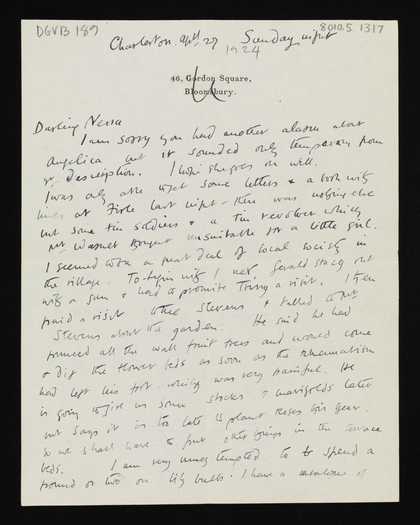 DGVB 189
8010.5 1317
Charleston. April 27 Sunday night
1924
46, Gordon Square,
Bloomsbury.
Darling Nessa
I am sorry you had another alarm about
Angelica but it sounded only temporary from
yr description. I hope she goes on well.
I was only able to get some letters & a book
at Firle last night - there was nothing else
but some tin soldiers & a tin revolver which
Mr thought unsuitable for a little girl.
I seemed to a great deal of local society in
the village. To begin with I met Gerald Stacy out
with a gun & had to promise Tommy a visit. I then
paid a visit to the Stevens & talked to
Stevens about the garden. He said he had
pruned all the wall fruit trees and would come
& dig the flower beds as soon as the rheumatism
had left his foot which was very painful. He
is going to give us some stocks & marigolds later
but says it is too late to plant roses this year.
so we shall have to put other things in the terrace
beds. I am very much tempted to spend a
pound or two on lily bulbs. I have a catalogue of